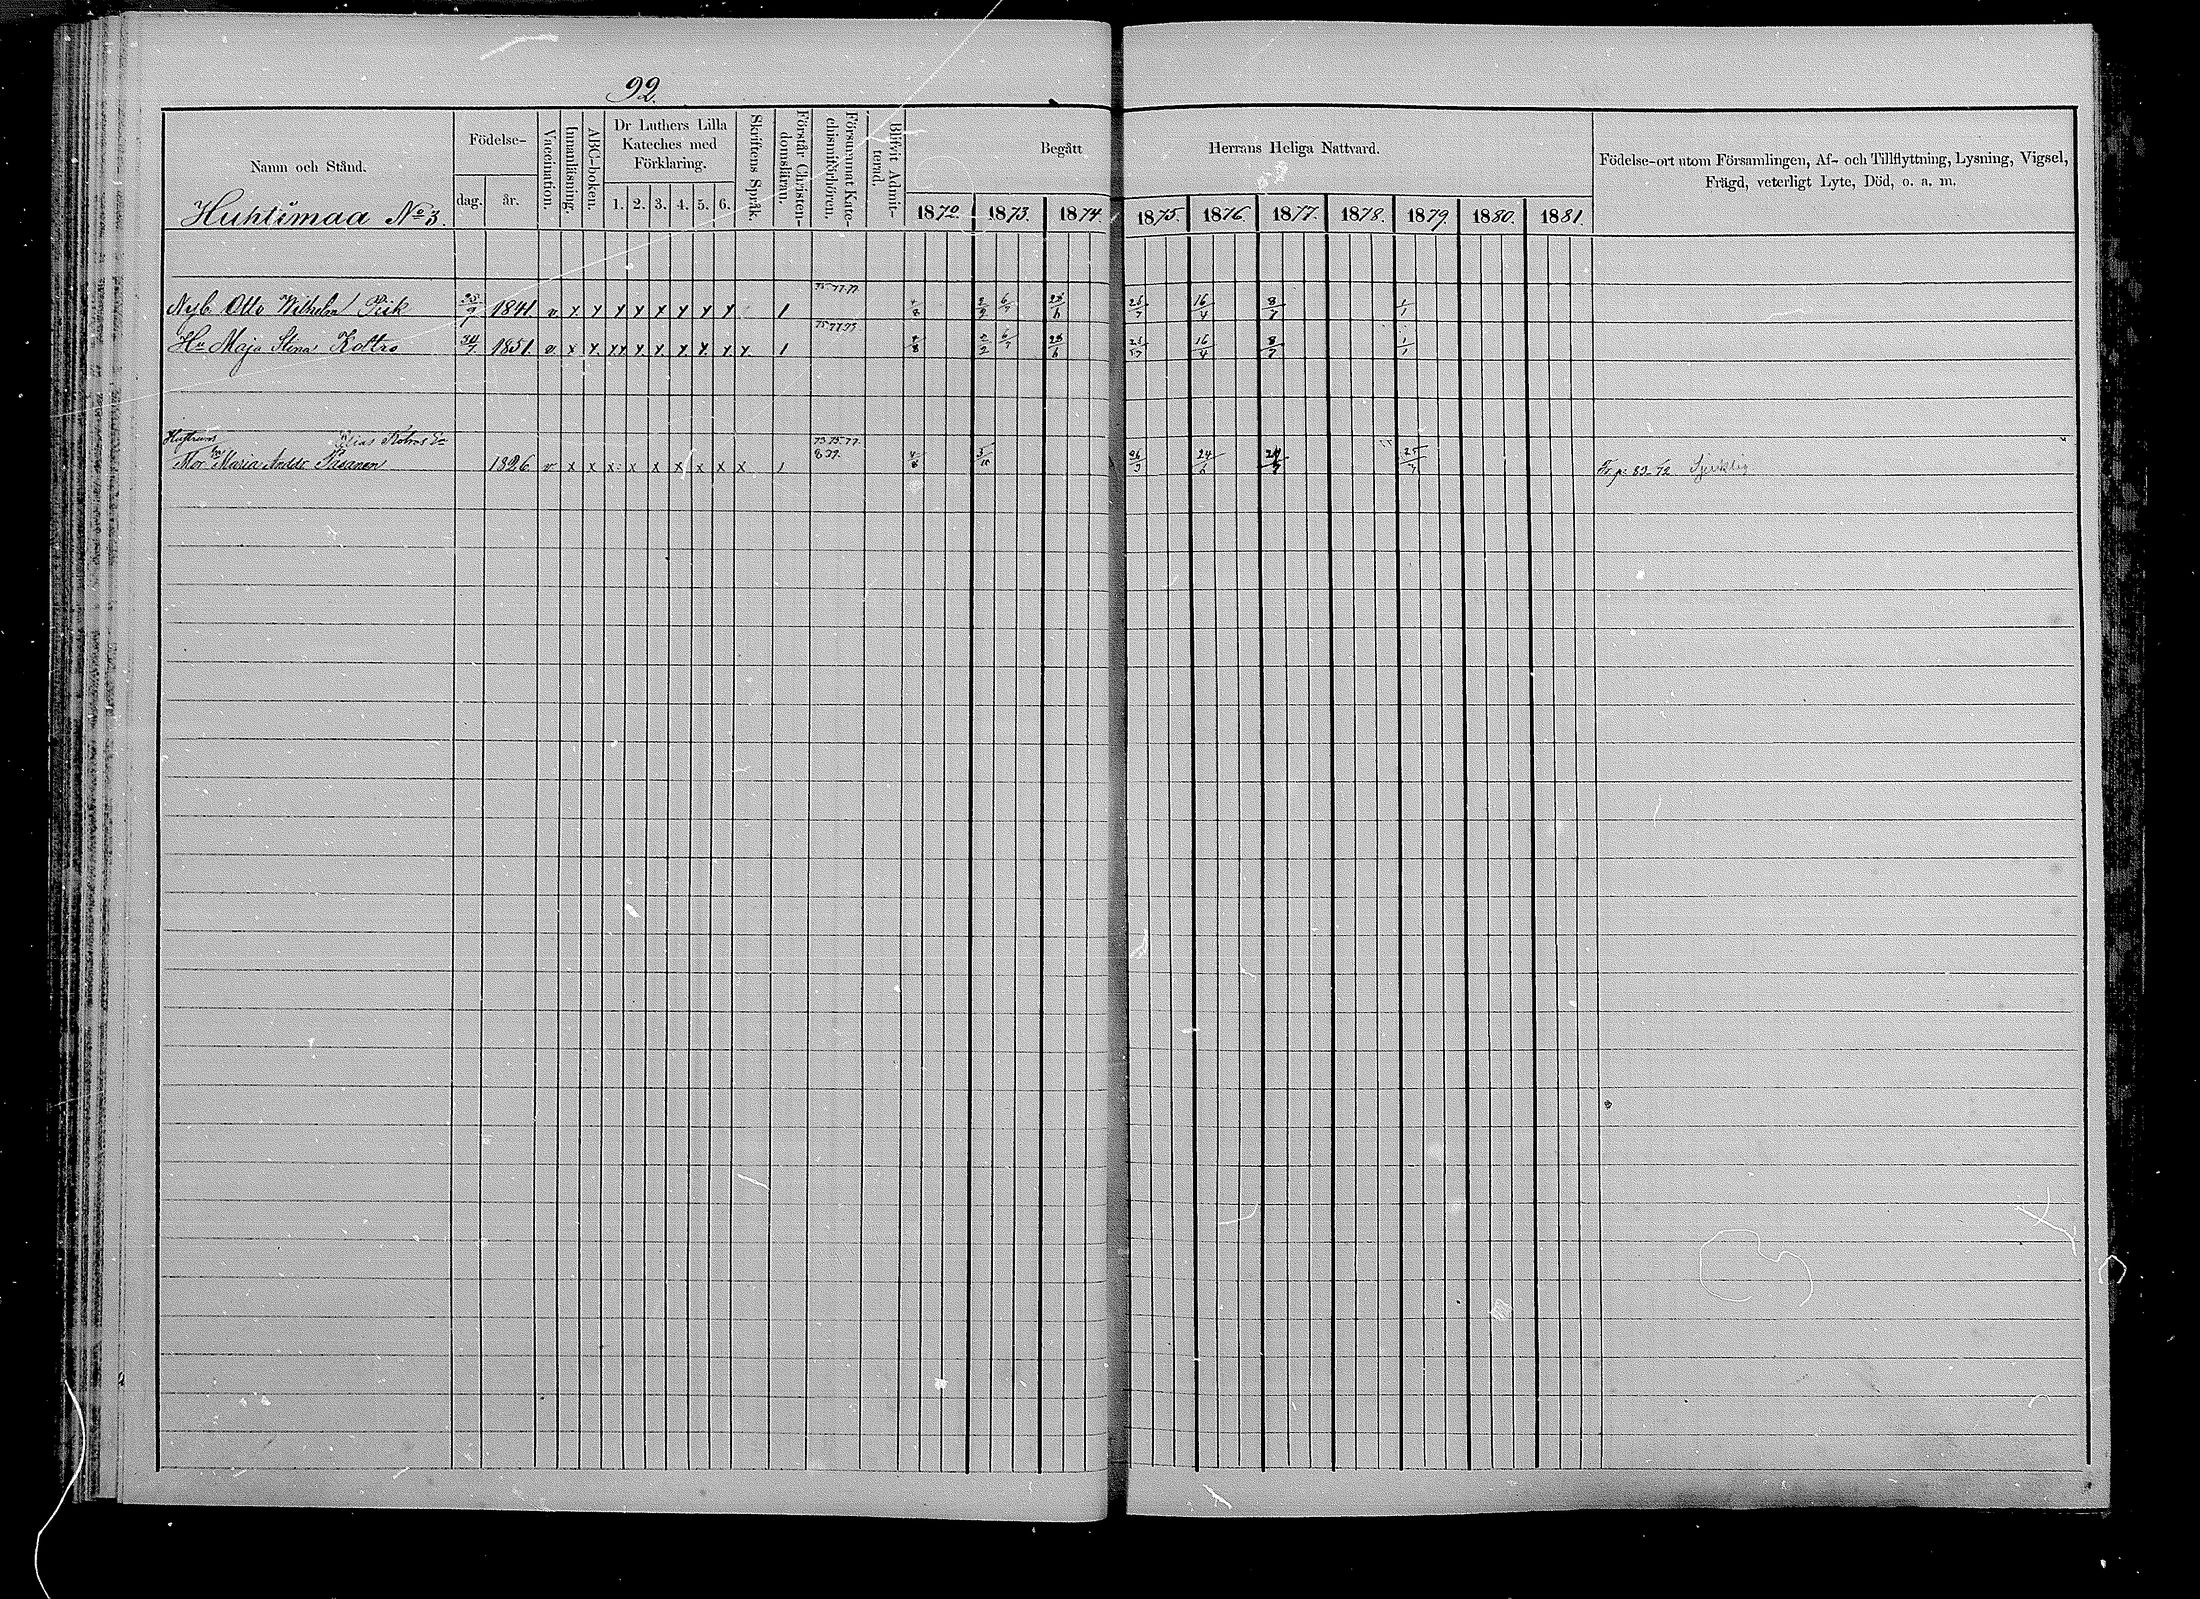 92.
Namn och Stånd.
Födelse-
dag.
år.
Vaccination.
Innanläsning.
ABC-boken.
Dr Luthers Lilla
Kateches med
Förklaring.
1. 2. 3. 4. 5. 6.
Skriftens Språk.
Förstår Christen-
domsläran.
Försummat Kate-
chismiförhören.
Blifvit Admit-
terad.
Begått
Herrans Heliga Nattvard.
1872. 1873. 1874. 1875. 1876. 1877. 1878. 1879. 1880. 1881.
Födelse-ort utom Församlingen, Af- och Tillflyttning, Lysning, Vigsel,
Frägd, veterligt Lyte, Död, o. a. m.
Huhtimaa No 3.
75 77 79
Nyb. Otto Wilhelm 1841 v x x x x x x x x 1 2/2 6/7 16/4 8/7 1/1
Hu Maja Stina Kottro 1851 v x x x x x x x x x 1 2/2 6/7 16/4 8/7 1/1
Hustruns
73 75 77
Mor Maria Anddr Pasanen 1826 v x x x x x x x x x 1 24/6 Fr p. 83-72 Sjuklig